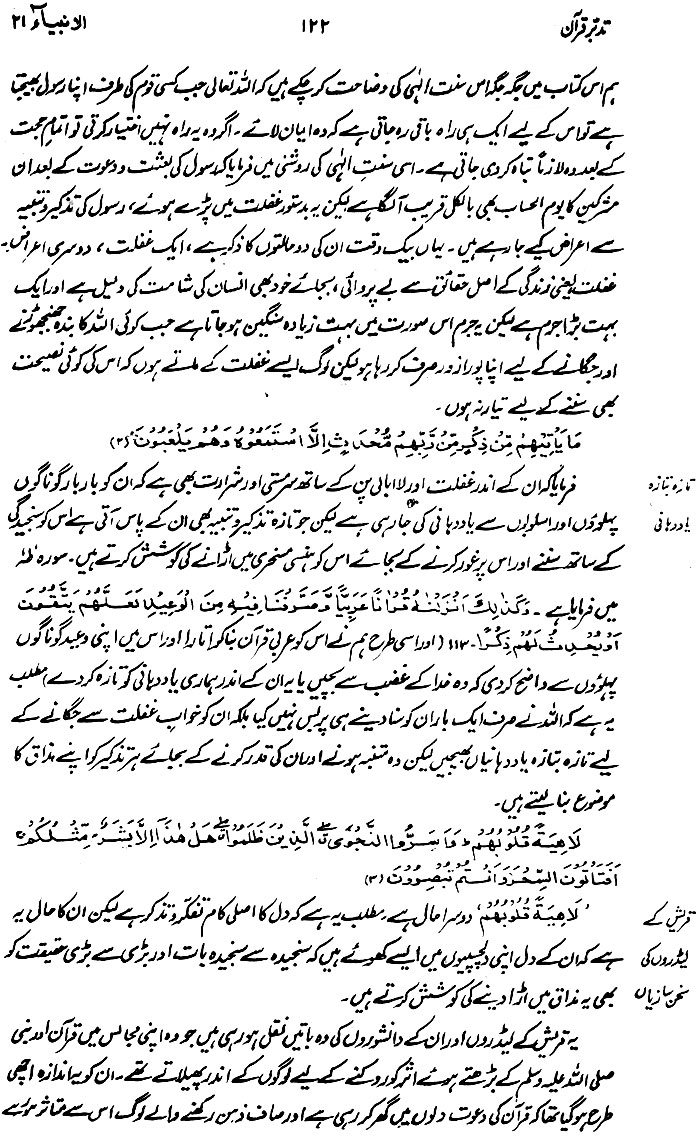 تدبر قرآن ۱۲۲ الانبیاء ۲۱
ہم اس کتاب میں جگہ جگہ اس سنت الٰہی کی وضاحت کر چکے ہیں کہ اللہ تعالیٰ جب کسی قوم کی طرف اپنا رسول بھیجتا
ہے تو اس کے لیے ایک ہی راہ باقی رہ جاتی ہے کہ وہ ایمان لائے۔ اگر وہ یہ راہ نہیں اختیار کرتی تو اتمام حجت
کے بعد وہ لازماً تباہ کر دی جاتی ہے۔ اسی سنتِ الٰہی کی روشنی میں فرمایا کہ رسول کی بعثت و دعوت کے بعد ان
مشرکین کا یوم الحساب بھی بالکل قریب آ لگا ہے لیکن یہ بدستور غفلت میں پڑے ہوئے، رسول کی تذکیر و تنبیہ
سے اعراض کیے جا رہے ہیں۔ یہاں بیک وقت ان کی دو حالتوں کا ذکر ہے، ایک غفلت، دوسری اعراض۔
غفلت یعنی زندگی کے اصل حقائق سے بے پروائی، بجائے خود بھی انسان کی شامت کی دلیل ہے اور ایک
بہت بڑا جرم ہے لیکن یہ جرم اس صورت میں بہت زیادہ سنگین ہو جاتا ہے جب کوئی اللہ کا بندہ جھنجھوڑنے
اور جگانے کے لیے اپنا پورا زور صرف کر رہا ہو لیکن لوگ ایسے غفلت کے ماتے ہوں کہ اس کی کوئی نصیحت
بھی سننے کے لیے تیار نہ ہوں۔
مَا يَاْتِيْهِمْ مِّنْ ذِكْرٍ مِّنْ رَّبِّهِمْ مُّحْدَثٍ اِلَّا اسْتَمَعُوْهُ وَهُمْ يَلْعَبُوْنَ (۲)
تازہ بتازہ فرمایا کہ ان کے اندر غفلت اور لاابالی پن کے ساتھ سرمستی اور شرارت بھی ہے کہ ان کو بار بار گوناگوں
یاددہانی پہلوؤں اور اسلوبوں سے یاددہانی کی جا رہی ہے لیکن جو تازہ تذکیر و تنبیہ بھی ان کے پاس آتی ہے اس کو سنجیدگی
کے ساتھ سننے اور اس پر غور کرنے کے بجائے اس کو ہنسی مسخری میں اڑانے کی کوشش کرتے ہیں۔ سورہ طٰہٰ
میں فرمایا ہے۔ وَكَذٰلِكَ اَنْزَلْنٰهُ قُرْاٰنًا عَرَبِيًّا وَّصَرَّفْنَا فِيْهِ مِنَ الْوَعِيْدِ لَعَلَّهُمْ يَتَّقُوْنَ
اَوْ يُحْدِثُ لَهُمْ ذِكْرًا۔ ۱۱۳ (اور اسی طرح ہم نے اس کو عربی قرآن بنا کر اتارا اور اس میں اپنی وعید گوناگوں
پہلوؤں سے واضح کر دی کہ وہ خدا کے غضب سے بچیں یا یہ ان کے اندر ہماری یاددہانی کو تازہ کر دے) مطلب
یہ ہے کہ اللہ نے صرف ایک بار ان کو سنا دینے ہی پر بس نہیں کیا بلکہ ان کو خواب غفلت سے جگانے کے
لیے تازہ بتازہ یاددہانیاں بھیجیں لیکن وہ متنبہ ہونے اور ان کی قدر کرنے کے بجائے ہر تذکیر کو اپنے مذاق کا
موضوع بنا لیتے ہیں۔
لَاهِيَةً قُلُوْبُهُمْ ۭ وَاَسَرُّوا النَّجْوَى ۖ الَّذِيْنَ ظَلَمُوْا ۖ هَلْ هٰذَا اِلَّا بَشَرٌ مِّثْلُكُمْ ۚ
اَفَتَاْتُوْنَ السِّحْرَ وَاَنْتُمْ تُبْصِرُوْنَ (۳)
قریش کے ’لَاهِيَةً قُلُوْبُهُمْ‘ دوسرا حال ہے۔ مطلب یہ ہے کہ دل کا اصلی کام تفکر و تذکر ہے لیکن ان کا حال یہ
لیڈروں کی ہے کہ ان کے دل اپنی دلچسپیوں میں ایسے کھوئے ہیں کہ سنجیدہ سے سنجیدہ بات اور بڑی سے بڑی حقیقت کو
سخن سازیاں بھی یہ مذاق میں اڑا دینے کی کوشش کرتے ہیں۔
یہ قریش کے لیڈروں اور ان کے دانشوروں کی وہ باتیں نقل ہو رہی ہیں جو وہ اپنی مجالس میں قرآن اور نبی
صلی اللہ علیہ وسلم کے بڑھتے ہوئے اثر کو روکنے کے لیے لوگوں کے اندر پھیلاتے تھے۔ ان کو یہ اندازہ اچھی
طرح ہو گیا تھا کہ قرآن کی دعوت دلوں میں گھر کر رہی ہے اور صاف ذہن رکھنے والے لوگ اس سے متاثر ہو رہے